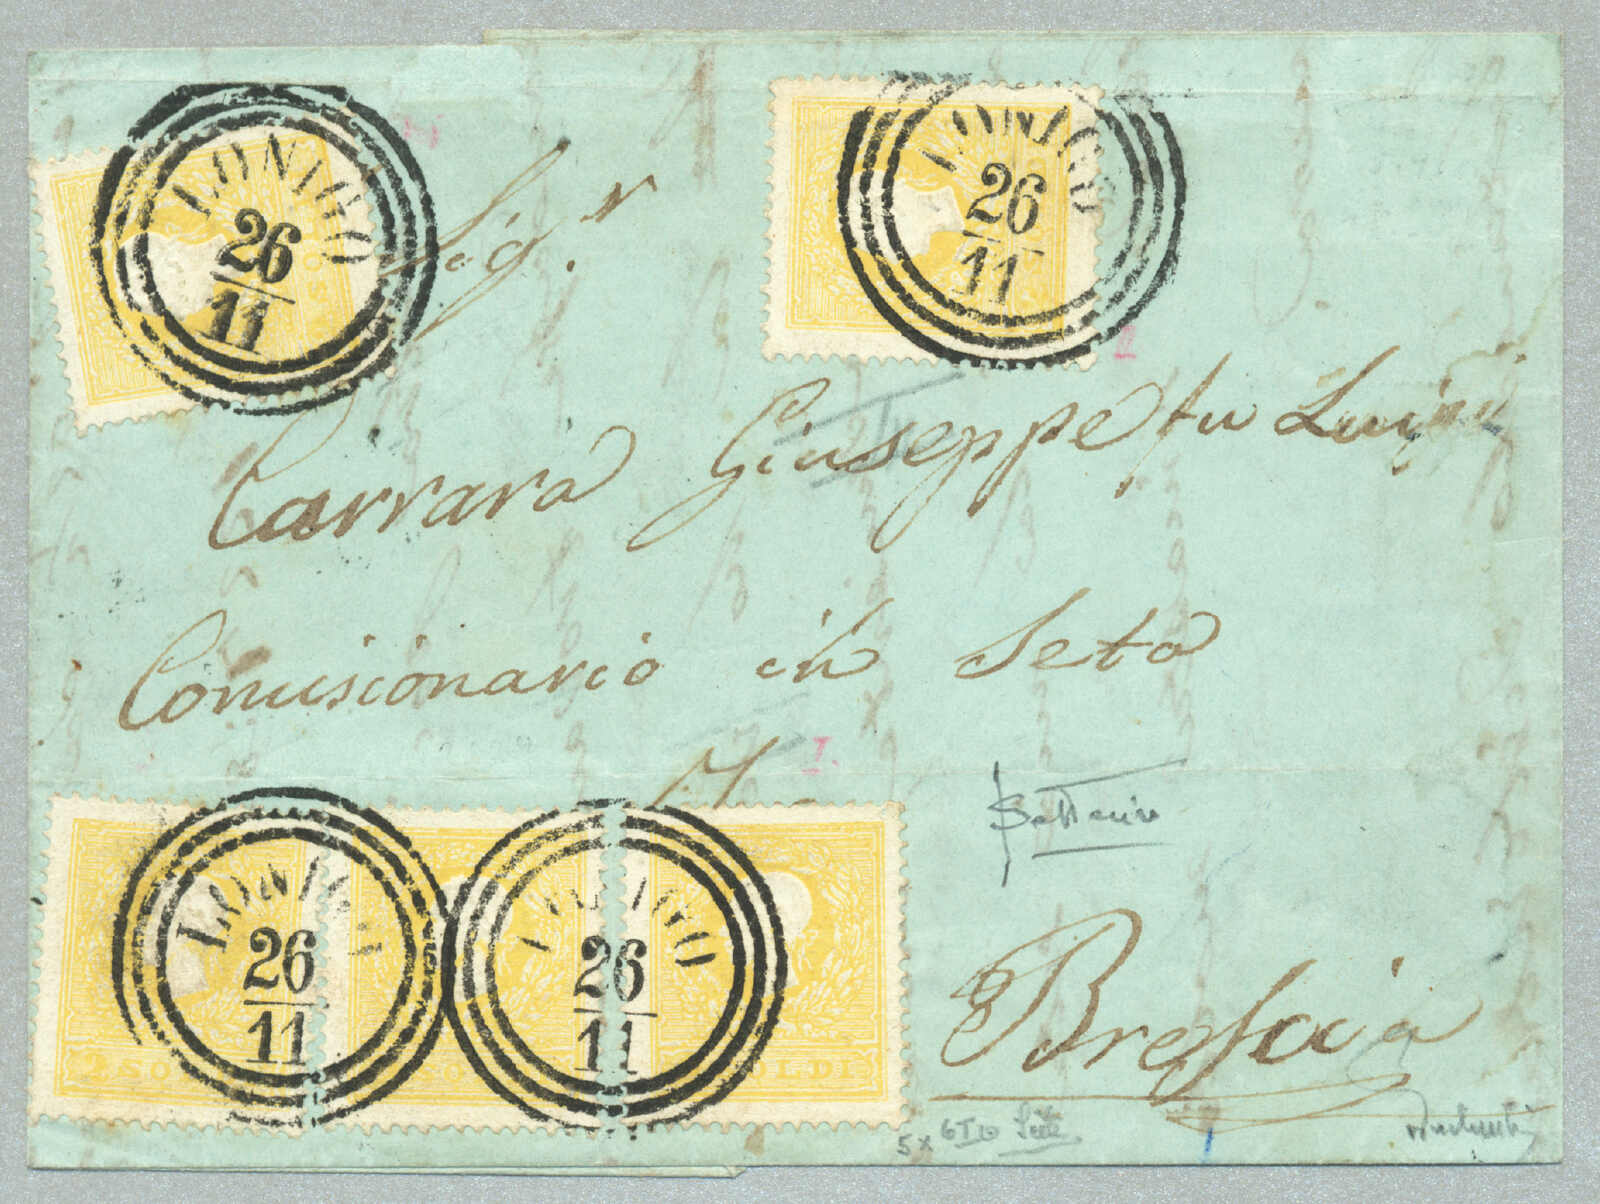 LONIGO
26
11
LONIGO
26
11
Sig.r
Carrara Giuseppe fu Luigi
Comisionario in Seta
LONIGO
26
11
LONIGO
26
11
2 SOLDI
I.
II
Brescia
5x